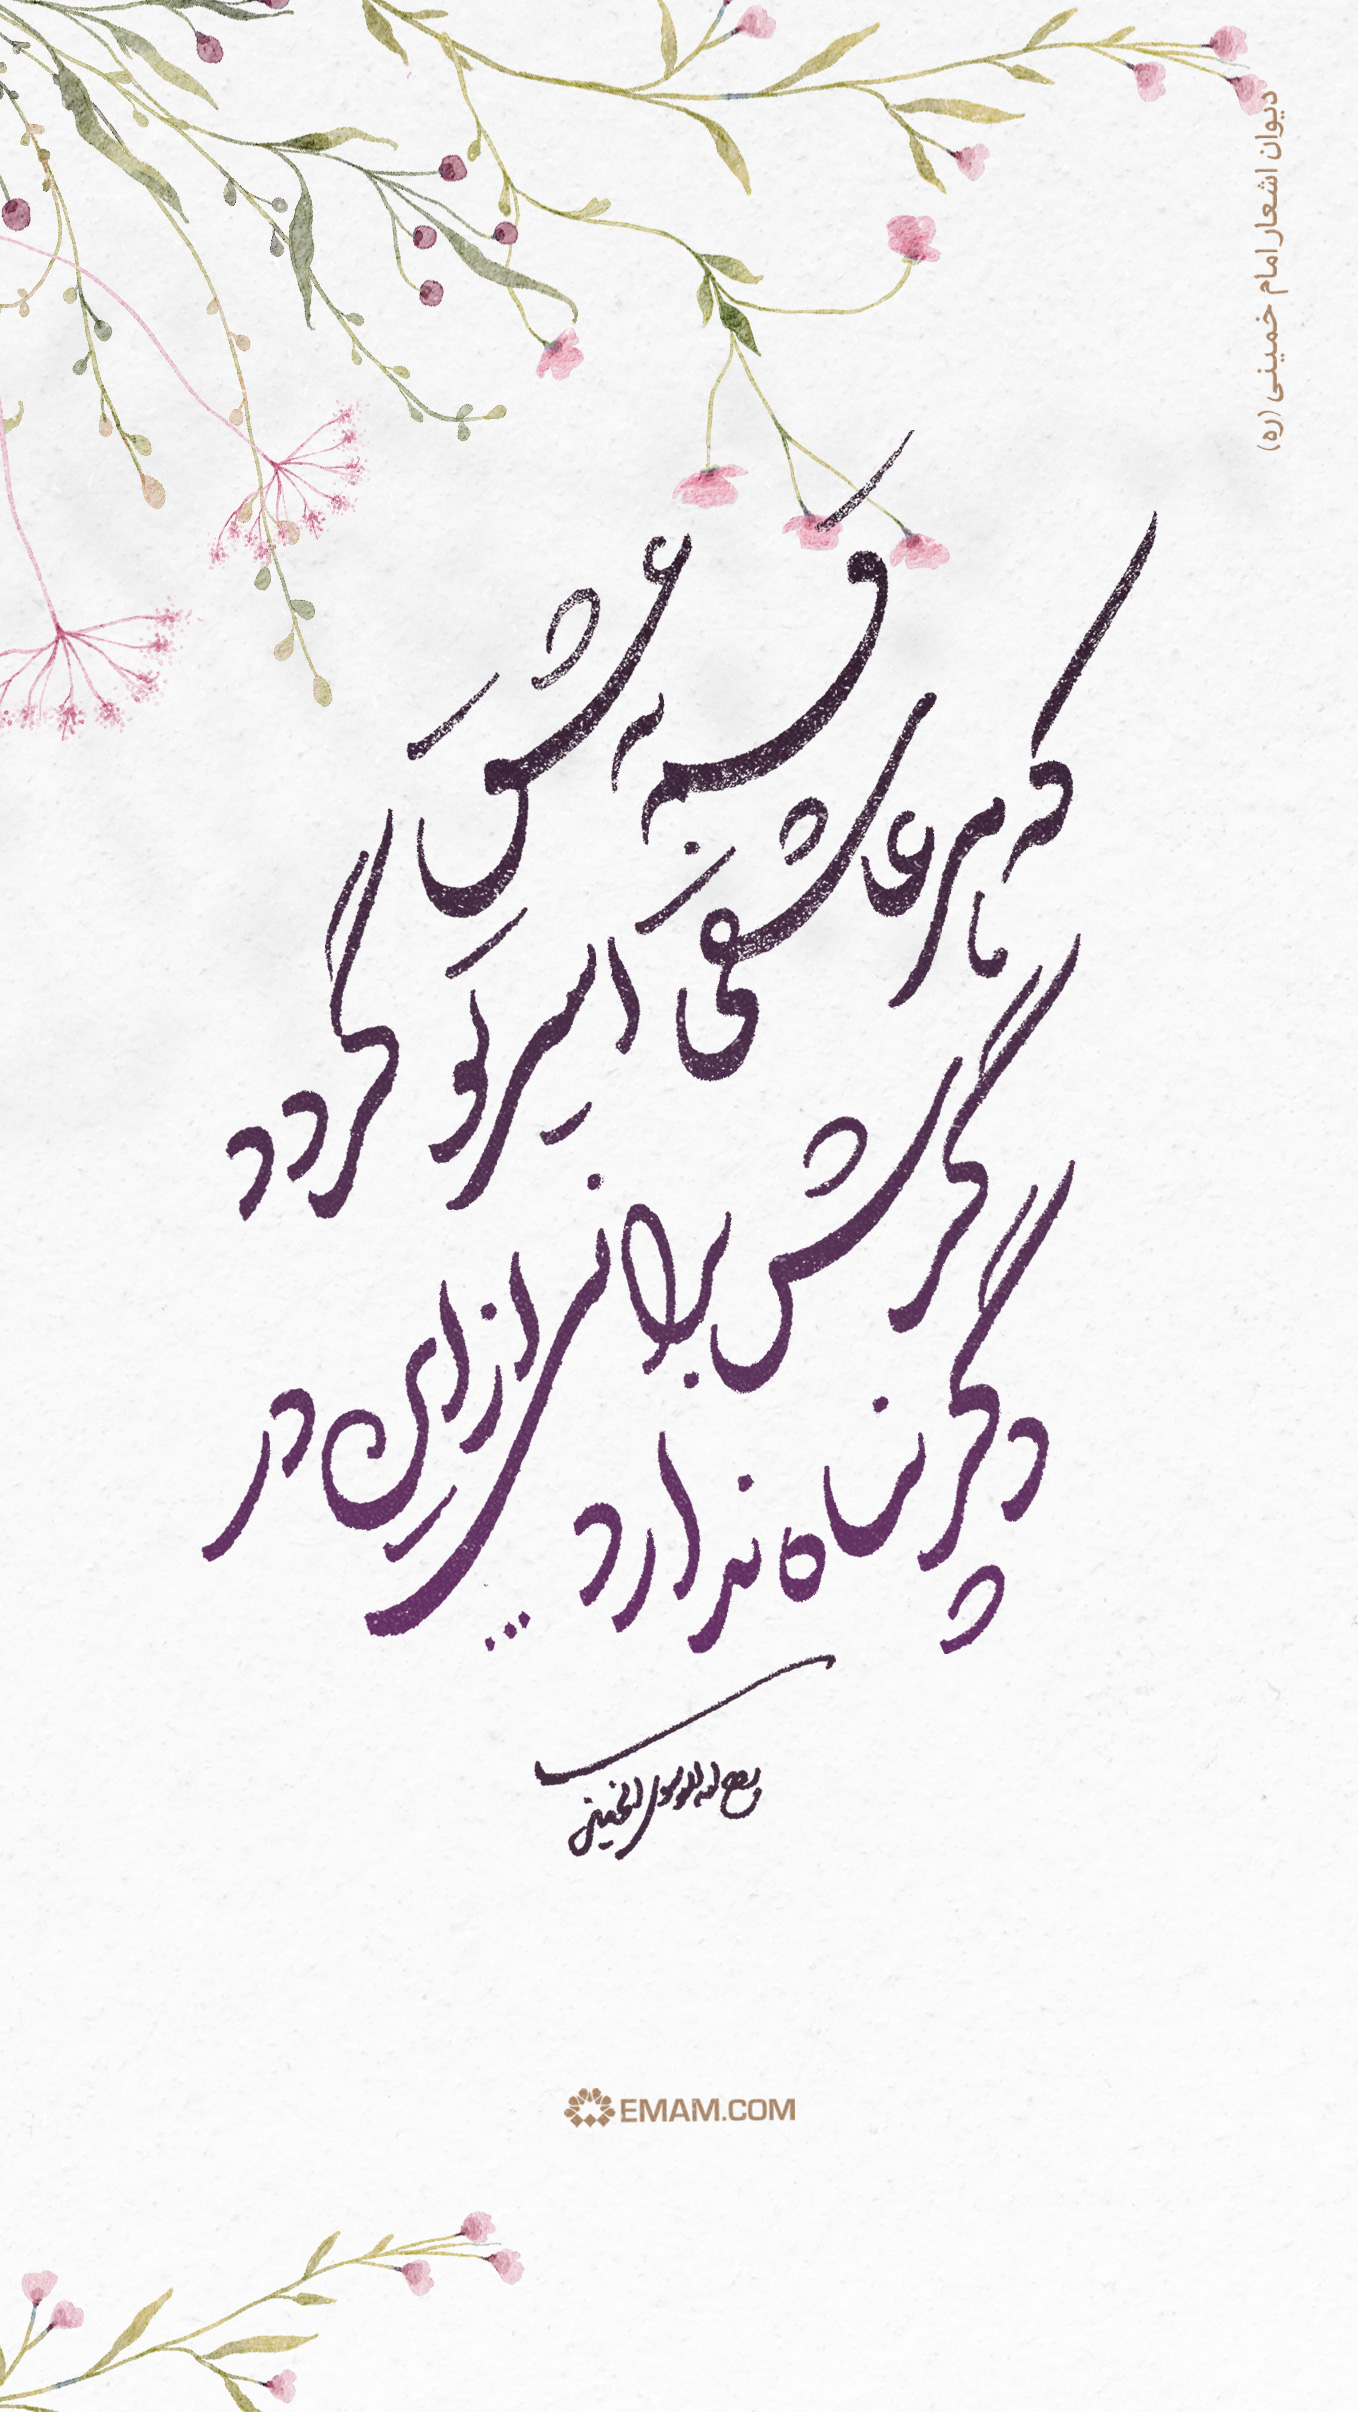 دیوان اشعار امام خمینی (ره)
قسم به عشق
که هر عاشقی اسیر تو گردد
گرش برانی از این در
دگر پناه ندارد ...
روح الله الموسوی الخمینی
EMAM.COM